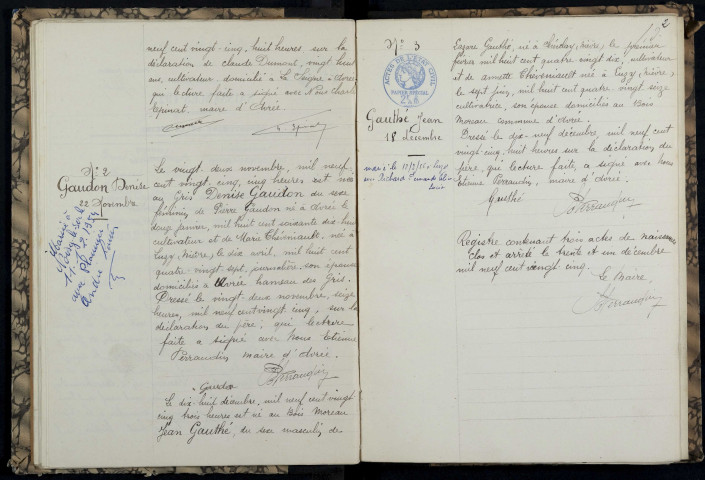 neuf cent vingt-cinq, huit heures, sur la
déclaration de Claude Dumont, vingt huit
ans, cultivateur, domicilié à
qui lecture faite a signé avec Nous Charles
Epinat, maire d'Avrée.
N° 2
Gaudon Denise
22 Novembre
Mariée à
avec
André
Le vingt-deux novembre, mil neuf
cent vingt-cinq, cinq heures est née
au Gris Denise Gaudon du sexe
féminin de Pierre Gaudon né à Avrée le
douze janvier, mil huit cent soixante dix-huit
cultivateur et de Marie Théveniault, née à
Luzy, Nièvre, le dix avril, mil huit cent
quatre-vingt sept, journalière, son épouse
domiciliés à Avrée hameau des Gris.
Dressé le vingt-deux novembre, seize
heures, mil neuf cent vingt cinq, sur la
déclaration du père, qui lecture
faite a signé avec Nous Etienne
Perraudin maire d'Avrée.
Gaudon
Le dix-huit décembre, mil neuf cent vingt
cinq trois heures est né au Bois Moreau
Jean Gauthé, du sexe masculin, de
2
N° 3
ACTES DE L'ETAT CIVIL
PAPIER SPECIAL
Gauthe Jean
18 décembre
Lazare Gauthé, né à Chiddes, Nièvre, le premier
mil huit cent quatre vingt dix, cultivateur
et de Annette Théveniault née à Luzy, Nièvre,
le sept juin, mil huit cent quatre vingt seize
cultivatrice, son épouse domiciliés au Bois
Moreau commune d'Avrée.
Dressé le dix-neuf décembre, mil neuf cent
vingt-cinq, huit heures sur la déclaration du
père, qui lecture faite, a signé avec nous
Etienne Perraudin, maire d'Avrée.
Gauthé
Perraudin
Registre contenant trois actes de naissances
clos et arrêté le trente et un décembre
mil neuf cent vingt cinq.
Le Maire,
Perraudin